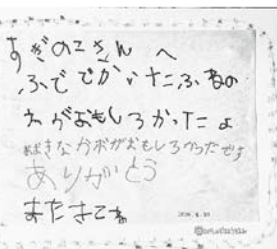 すぎのこさん へ
ふで でかいたふねの
えがおもしろかったよ
おおきなカボがおもしろかったです
ありがとう
またきてね